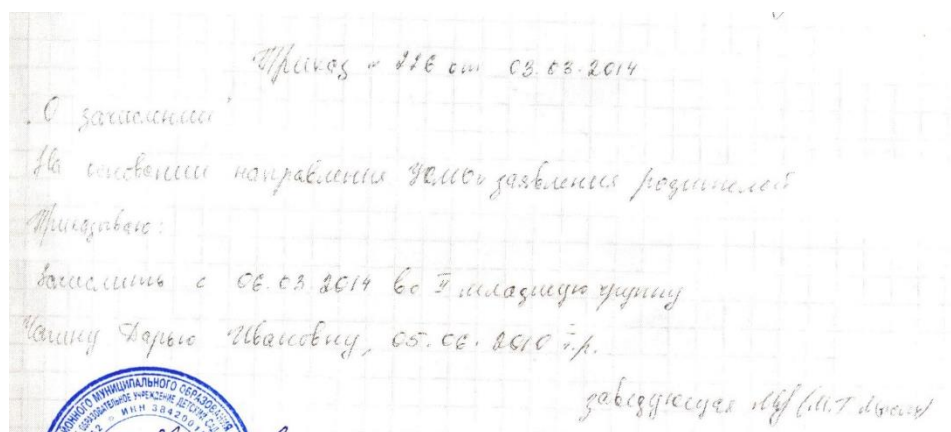 Приказ № 226 от 03.03.2014
"О зачислении"
На основании направления УОМО и заявления родителей
Приказываю:
Зачислить с 06.03.2014 во II младшую группу
Дарью Ивановну, 05.06.2010 г.р.
заведующая (М.Т.
МУНИЦИПАЛЬНОГО ОБРАЗОВАНИЯ
УЧРЕЖДЕНИЕ ДЕТСКИЙ САД
ИНН 38420